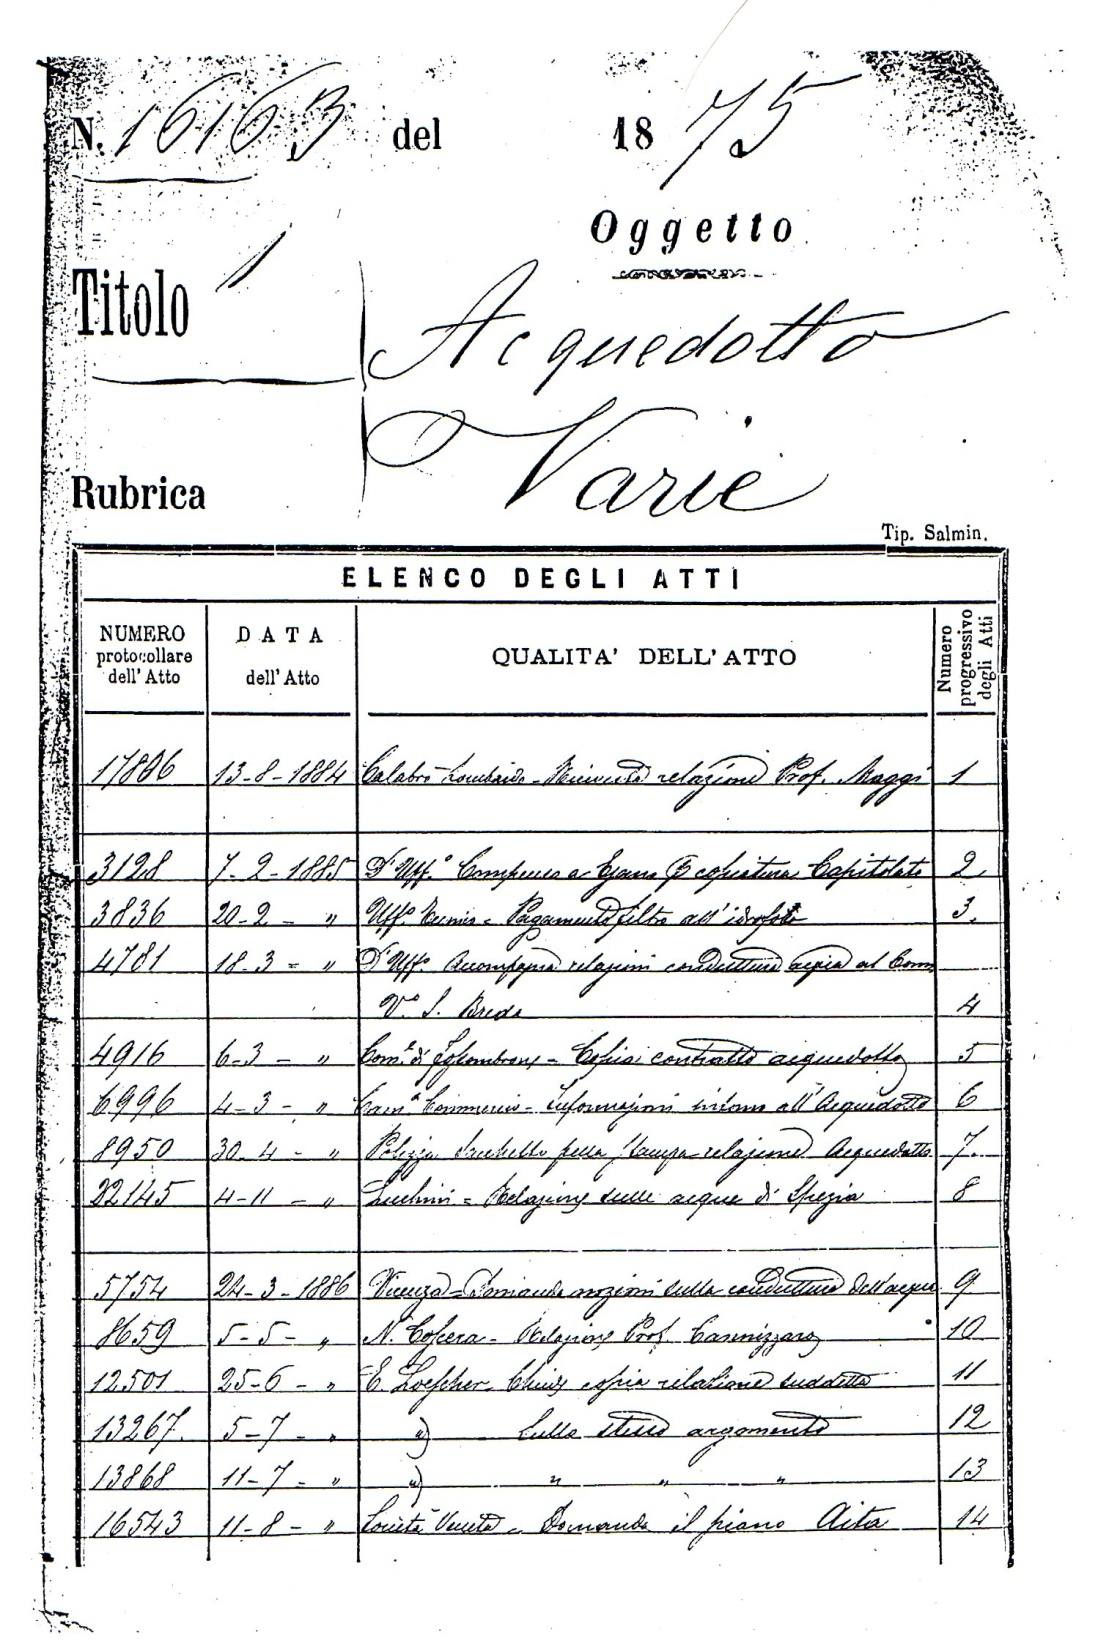 N. 16163 del 1875
Oggetto
Titolo 1
Acquedotto
Varie
Rubrica
Tip. Salmin.
ELENCO DEGLI ATTI
NUMERO protocollare dell' Atto DATA dell' Atto QUALITA' DELL' ATTO Numero progressivo degli Atti
17806 13-8-1884 Calabrò Lombardo - relazione Prof. Maggi 1
3128 7-2-1885 D'Uff.° Compenso a copiatura Capitolato 2
3836 20-2 - " Uff.° - Pagamento filtro all' idrofoto 3.
4781 18-3 - " D'Uff.° Accompagna relazioni conduttura acqua al Comm
V.° S. Breda 4
4916 6-3 - " Com.e di - Copia contratto acquedotto 5
6996 4-3 - " Cam.a Commercio - Informazioni intorno all' Acquedotto 6
8950 30-4 - " Polizza Sacchetto pella stampa relazione Acquedotto 7.
22145 4-11 - " Luchini - Relazione sulle acque di Spezia 8
5754 24-3-1886 Vicenza - Domanda nozioni sulla conduttura dell'acqua 9
8659 5-5- " N. - Relazione Prof. Cannizzaro 10
12501 25-6 - " E. Loescher Chiede copia relazione suddetta 11
13267. 5-7 - " ") Sullo stesso argomento 12
13868 11-7 - " ") " " " 13
16543 11-8 - " Società Veneta - Domanda il piano Aita 14